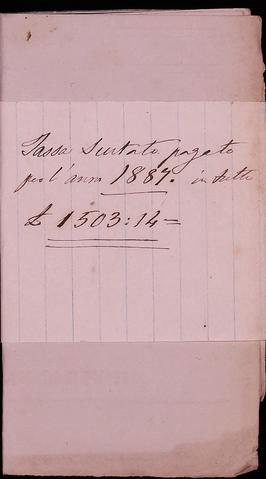 Tassa pagata
per l'anno 1887. in tutto
£ 1503:14=